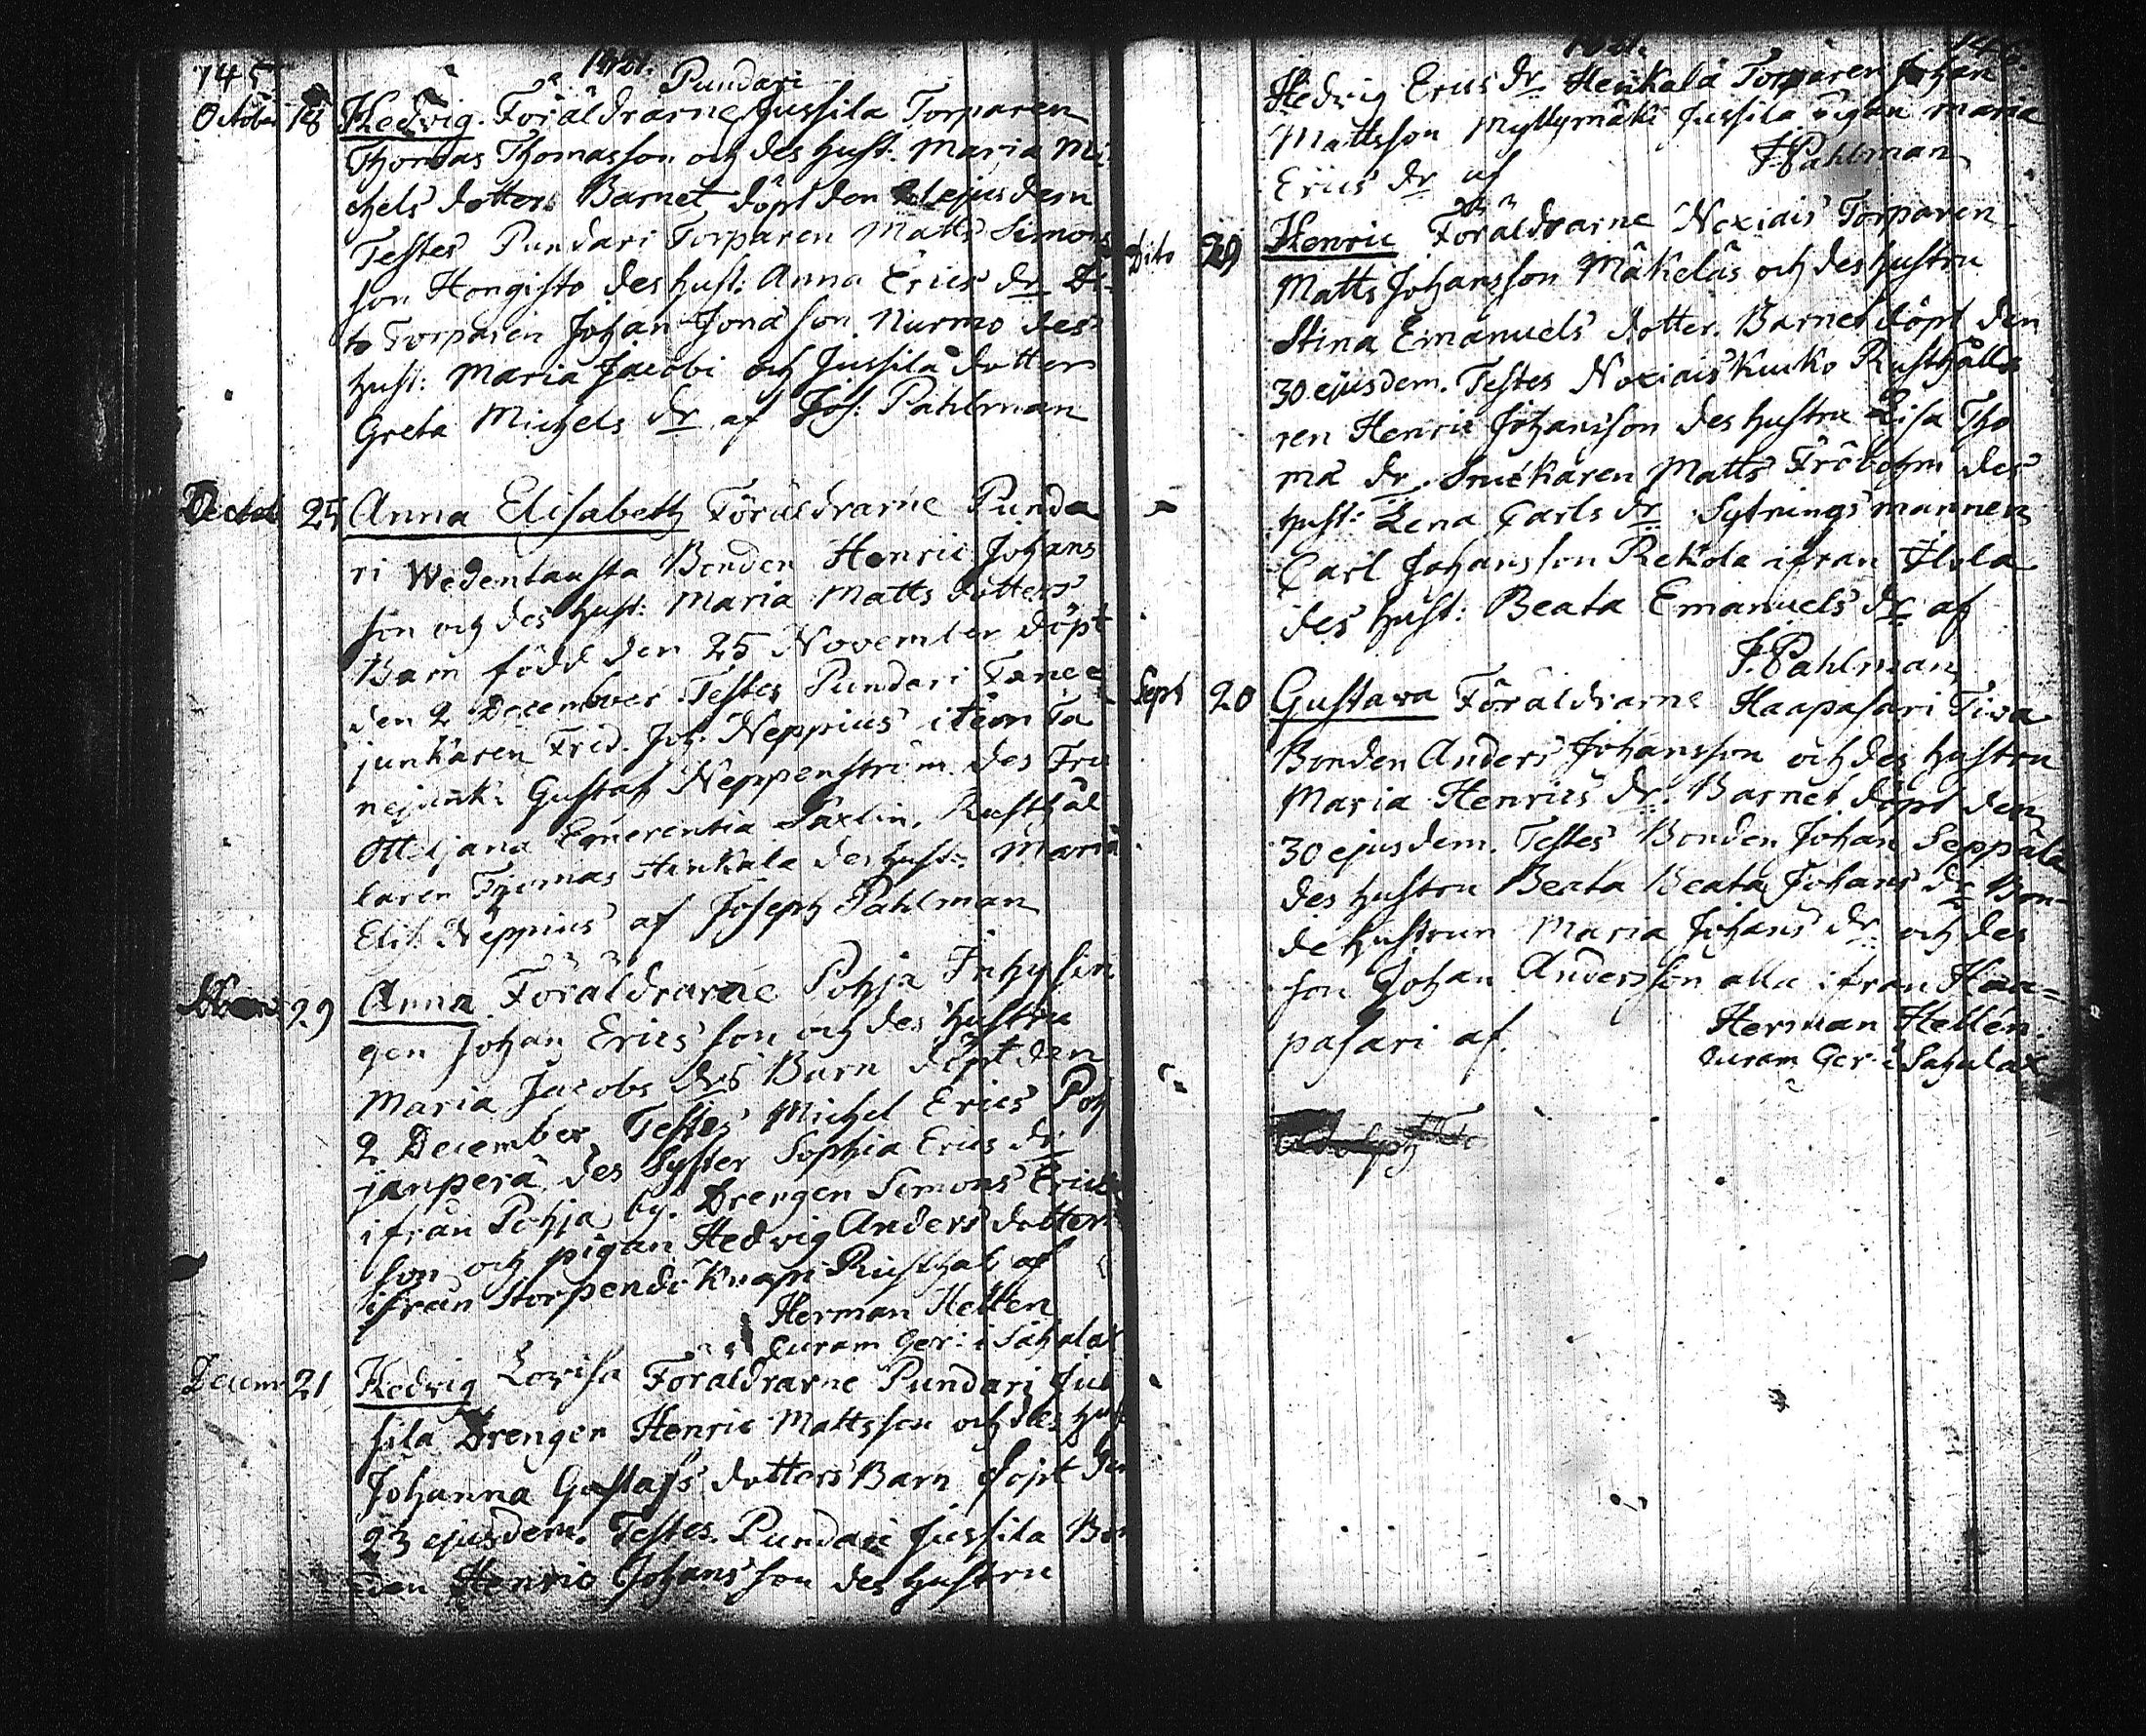 145
1821.
Pundari
October 18 Hedvig. Föräldrarne Jussila Torparen
Thomas Thomasson och des hust: Maria Mi
chels dotters Barnet döpt den 21 ejusdem
Testes Pundari Torparen Matts Simons
son Hongisto des hust: Anna Erics dr Di-
to Torparen Johan Jonasson Nurmo des
hust: Maria Jacobi och Jussila dotter
Greta Michels dr af Jos: Pahlman
25 Anna Elisabeth Föräldrarne Punda
ri Wedentausta Bonden Henric Johans
son och des hust: Maria Matts dotters
Barn född den 25 November döpt
den 2 December. Testes Pundari Fane
junkaren Fred. Joh: Neppius item Fa
nejunk: Gustaf Neppenström des Fru
Ottiljana Emerentia Saxlin. Rusthål
laren Thomas Heinkala des hust: Maria
Elis: Neppius af Joseph Pahlman
29 Anna Föräldrarne Pohja Inhysin
gen Johan Ericsson och des hustru
Maria Jacobs drs Barn döpt den
2 December. Testes Michel Erics Poh
janperä des Syster Sophia Erics dr
ifrån Pohja by. Drengen Simons Erics
son och pigan Hedvig Anders dotter
ifrån Storpendi Knapi Rusthål af
Herman Hellén
Curam Ger: i Sahalax
Decem 21 Hedvig Lovisa Föräldrarne Pundari Jus
sila Drengen Henric Mattsson och des hust
Johanna Gustafs dotters Barn döpt den
23 ejusdem. Testes Pundari Jussila Bon
den Henric Johansson des hustru
1821. 146.
Hedvig Erics dr Heikala Torparen Johan
Mattsson Myllymäki Jussila Pigan Maria
Erics dr af J. Pahlman
Dito 29 Henric Föräldrarne Noxiais Torparen
Matts Johansson Mäkeläs och des hustru
Stina Emanuels dotter. Barnet döpt den
30 ejusdem. Testes Noxiais Kuko Rusthålla
ren Henric Johansson des hustru Lisa Tho
ma dr. Snickaren Matts Fröbohm des
hust: Lena Carls dr Sytningsmannen
Carl Johansson Rekola ifran Ilola
des hust: Beata Emanuels dr af
J. Pahlman
Sept 20 Gustava Föräldrarne Haapasari Tiva
Bonden Anders Johansson och des hustru
Maria Henrics dr. Barnet döpt den
30 ejusdem. Testes Bonden Johan Seppälä
des hustru Beata Beata Johans dr Bon-
de hustrun Maria Johans dr och des
son Johan Andersson alla ifran Haa=
pasari af Herman Hellén.
Curam Ger: i Sahalax